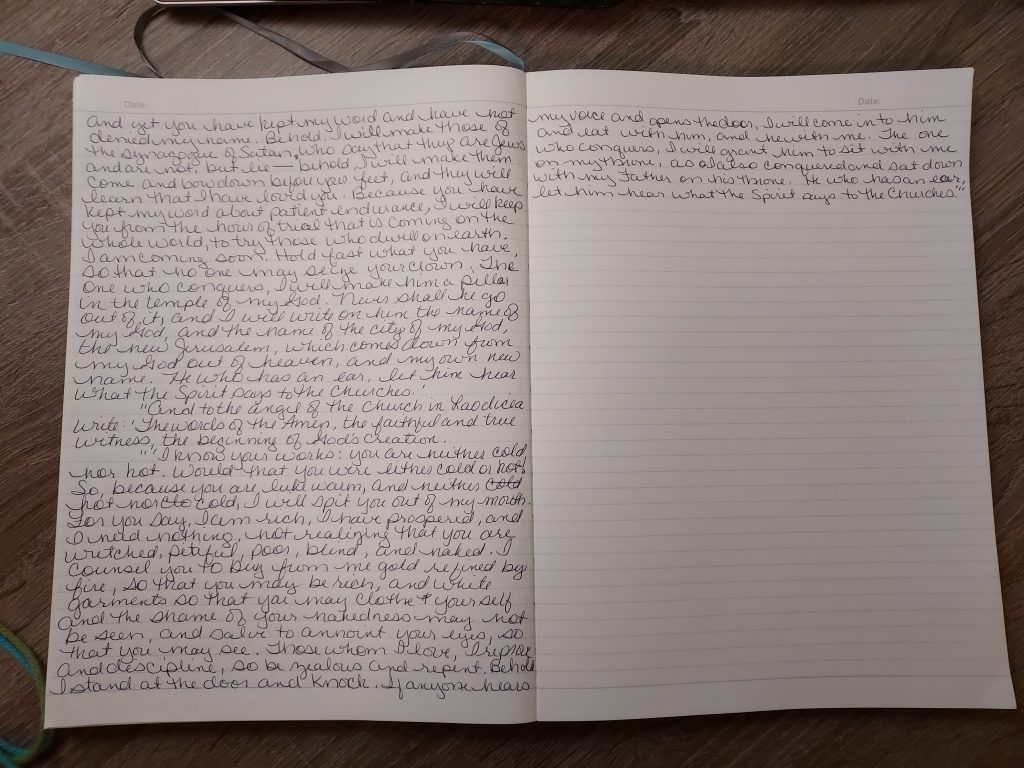 Date:
and yet you have kept my word and have not
denied my name. Behold, I will make those of
the synagogue of Satan, who say that they are Jews
and are not, but lie — behold, I will make them
come and bow down before your feet, and they will
learn that I have loved you. Because you have
kept my word about patient endurance, I will keep
you from the hour of trial that is coming on the
whole world, to try those who dwell on earth.
I am coming soon. Hold fast what you have,
so that no one may seize your crown. The
one who conquers, I will make him a pillar
in the temple of my God. Never shall he go
out of it, and I will write on him the name of
my God, and the name of the city of my God,
the new Jerusalem, which comes down from
my God out of heaven, and my own new
name. He who has an ear, let him hear
what the Spirit says to the Churches.'
"And to the angel of the Church in Laodicea
write: 'The words of the Amen, the faithful and true
witness, the beginning of God's creation.
"'I know your works: you are neither cold
nor hot. Would that you were either cold or hot!
So, because you are lukewarm, and neither cold
hot nor to cold, I will spit you out of my mouth.
For you say, I am rich, I have prospered, and
I need nothing, not realizing that you are
wretched, pitiful, poor, blind, and naked. I
counsel you to buy from me gold refined by
fire, so that you may be rich, and white
garments so that you may clothe yourself
and the shame of your nakedness may not
be seen, and salve to annoint your eyes, so
that you may see. Those whom I love, I reprove
and discipline, so be zealous and repent. Behold
I stand at the door and knock. If anyone hears
Date:
my voice and opens the door, I will come in to him
and eat with him, and he with me. The one
who conquers, I will grant him to sit with me
on my throne, as I also conquered and sat down
with my Father on his throne. He who has an ear,
let him hear what the Spirit says to the Churches.'"